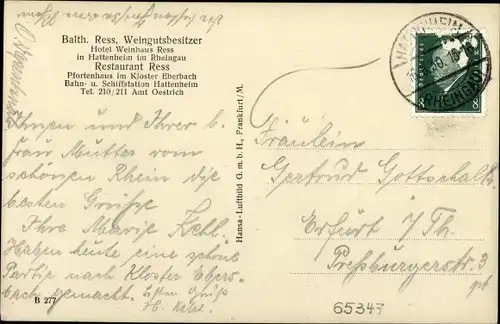 Balth. Ress, Weingutsbesitzer
Hotel Weinhaus Ress
in Hattenheim im Rheingau
Restaurant Ress
Pfortenhaus im Kloster Eberbach
Bahn- u. Schiffstation Hattenheim
Tel. 210/211 Amt Oestrich
Ihnen und Ihrer b.
Frau Mutter vom
schönen Rhein die
besten Grüße
Ihre Marie
Haben heute eine schöne
Partie nach Kloster Ebers-
bach gemacht.
B 277
Hansa-Luftbild G. m. b. H., Frankfurt/M.
HATTENHEIM
(RHEINGAU)
8 8
Fräulein
Gertrud Gottschalk
Erfurt i/Th.
Preßburgerstr. 3
65347